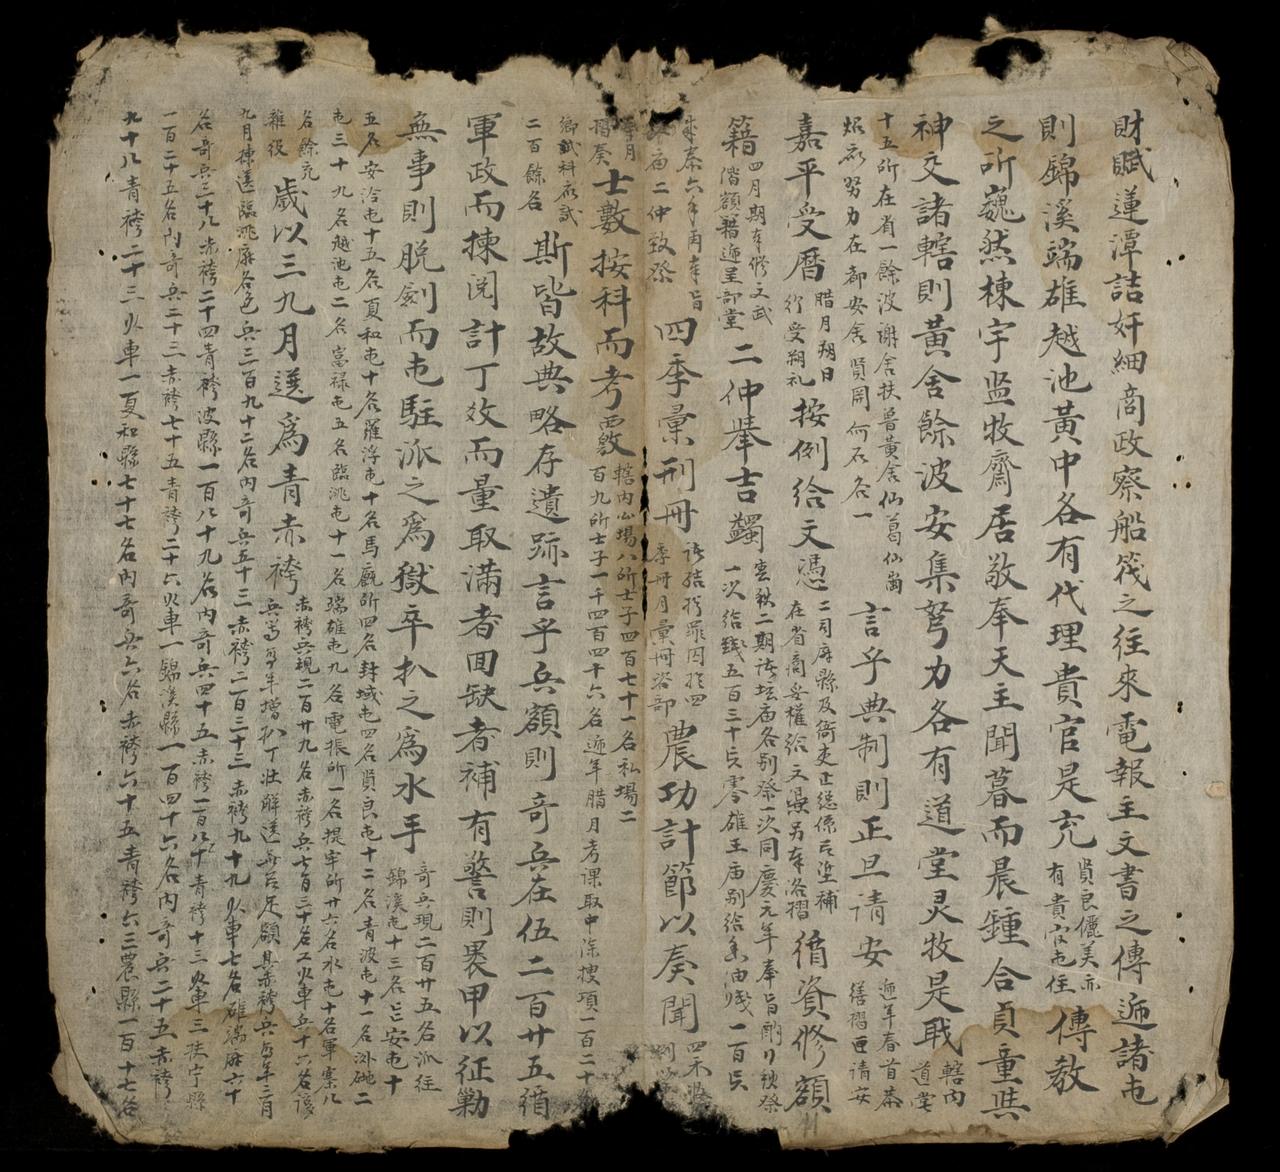 財賦蓮潭詰奸細商政察船筏之往來電報主文書之傳遞諸屯
則錦溪端雄越池黃中各有代理貴官是充 賢良儷美亦有貴官屯住 傳教
之所巍然棟宇监牧齋居敬奉天主聞暮而晨鍾合貝童
神交諸轄則黃舍餘波安集弩力各有道堂灵牧是職 轄內道堂
十五所在省一餘波謝舍扶魯黃舍仙葛仙崗
弩力在都安舍賢岡何石各一 言乎典制則正旦请安 遞年春首恭繕摺亜请安
嘉平受曆 腊月朔日行受朔礼 按例给文憑 二司府縣及衙吏正總係應塡補在省商妥權给文憑另奉洛摺 循資修額
籍 四月期奉修文武階額籍遞呈部堂 二仲举吉蠲 春秋二期諸坛庙各别祭一次同慶元年奉旨酌行秋祭一次给錢五百三十貫零雄王庙别给香油錢一百貫
成泰六年丙奉旨庙二仲致祭 四季彙刑冊 諸结拟罪囚於四季冊月彙冊咨部 農功計節以奏聞
月摺奏 士數按科而考覈 轄内公場八所士子四百七十一名私場二百九所士子一千四百四十六名遞年腊月考課取中除搜項一百二十
鄉試科應試二百餘名 斯皆故典略存遺跡言乎兵額則奇兵在伍二百廿五循
軍政而揀閲計丁效而量取滿者回缺者補有警則裹甲以征勦
無事則脱劍而屯駐派之為獄卒扒之為水手 奇兵現二百廿五名派往錦溪屯十三名安屯十
五名安洽屯十五名夏和屯十名羅浮屯十名馬廠所四名封域屯四名賢良屯十二名青波屯十一名沙硴二
屯三十九名越池屯二名富禄屯五名臨洮屯十一名瑞雄屯九名電振所一名提牢所廿六名水屯十名軍寨八
名餘充雜役 歲以三九月選為青赤袴 赤袴兵現二百廿九名赤袴兵七百三十名工火車兵十六名該兵寄每年增扒丁壯觧送每召足額其赤袴兵每年三月
九月揀送臨洮府各色兵三百九十二名内奇兵五十三赤袴二百三十三赤袴九十九火車七名雄端府六十
名奇兵三十八赤袴二十四青袴波縣一百八十九名内奇兵四十五赤袴一百八十青袴十三火車三扶宁縣
一百二十五名内奇兵二十三赤袴七十五青袴二十六火車一錦溪縣一百四十六名内奇兵二十五赤袴
九十八青袴二十三火車一夏和縣七十七名内奇兵六名赤袴六十五青袴六三農縣一百十七名